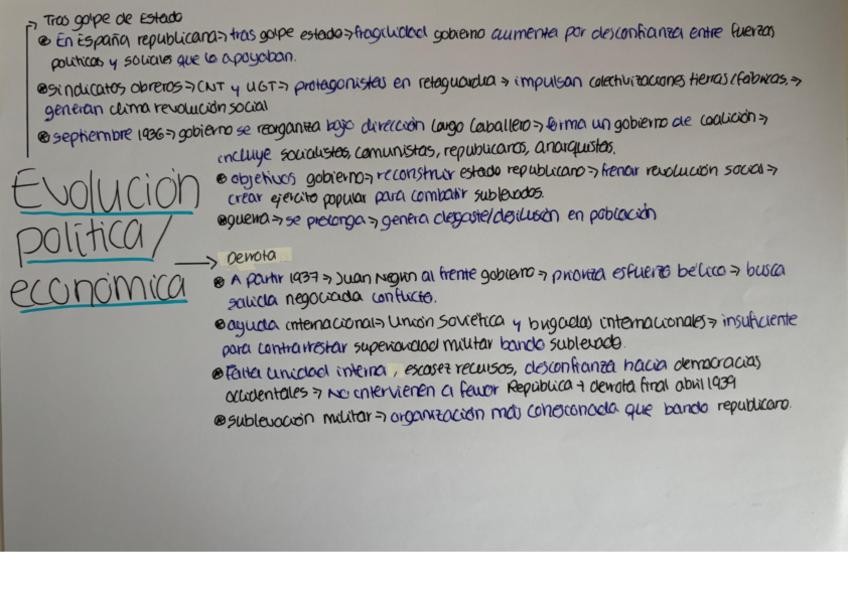 → Tras golpe de Estado
• En España republicana → tras golpe estado → fragilidad gobierno aumenta por desconfianza entre fuerzas
políticas y sociales que lo apoyaban.
• sindicatos obreros → CNT y UGT → protagonistas en retaguardia → impulsan colectivizaciones tierras/fábricas →
generan clima revolución social
• septiembre 1936 → gobierno se reorganiza bajo dirección Largo Caballero → forma un gobierno de coalición →
incluye socialistas, comunistas, republicanos, anarquistas.
• objetivos gobierno → reconstruir estado republicano → frenar revolución social →
crear ejército popular para combatir sublevados.
• guerra → se prolonga → genera desgaste/desilusión en población
Evolución
política/
económica
→ Derrota
• A partir 1937 → Juan Negrín al frente gobierno → prioriza esfuerzo bélico → busca
salida negociada conflicto.
• ayuda internacional → Unión Soviética y brigadas internacionales → insuficiente
para contrarrestar superioridad militar bando sublevado.
• Falta unidad interna, escasez recursos, desconfianza hacia democracias
occidentales → No intervienen a favor República + derrota final abril 1939
• sublevación militar → organización más cohesionada que bando republicano.